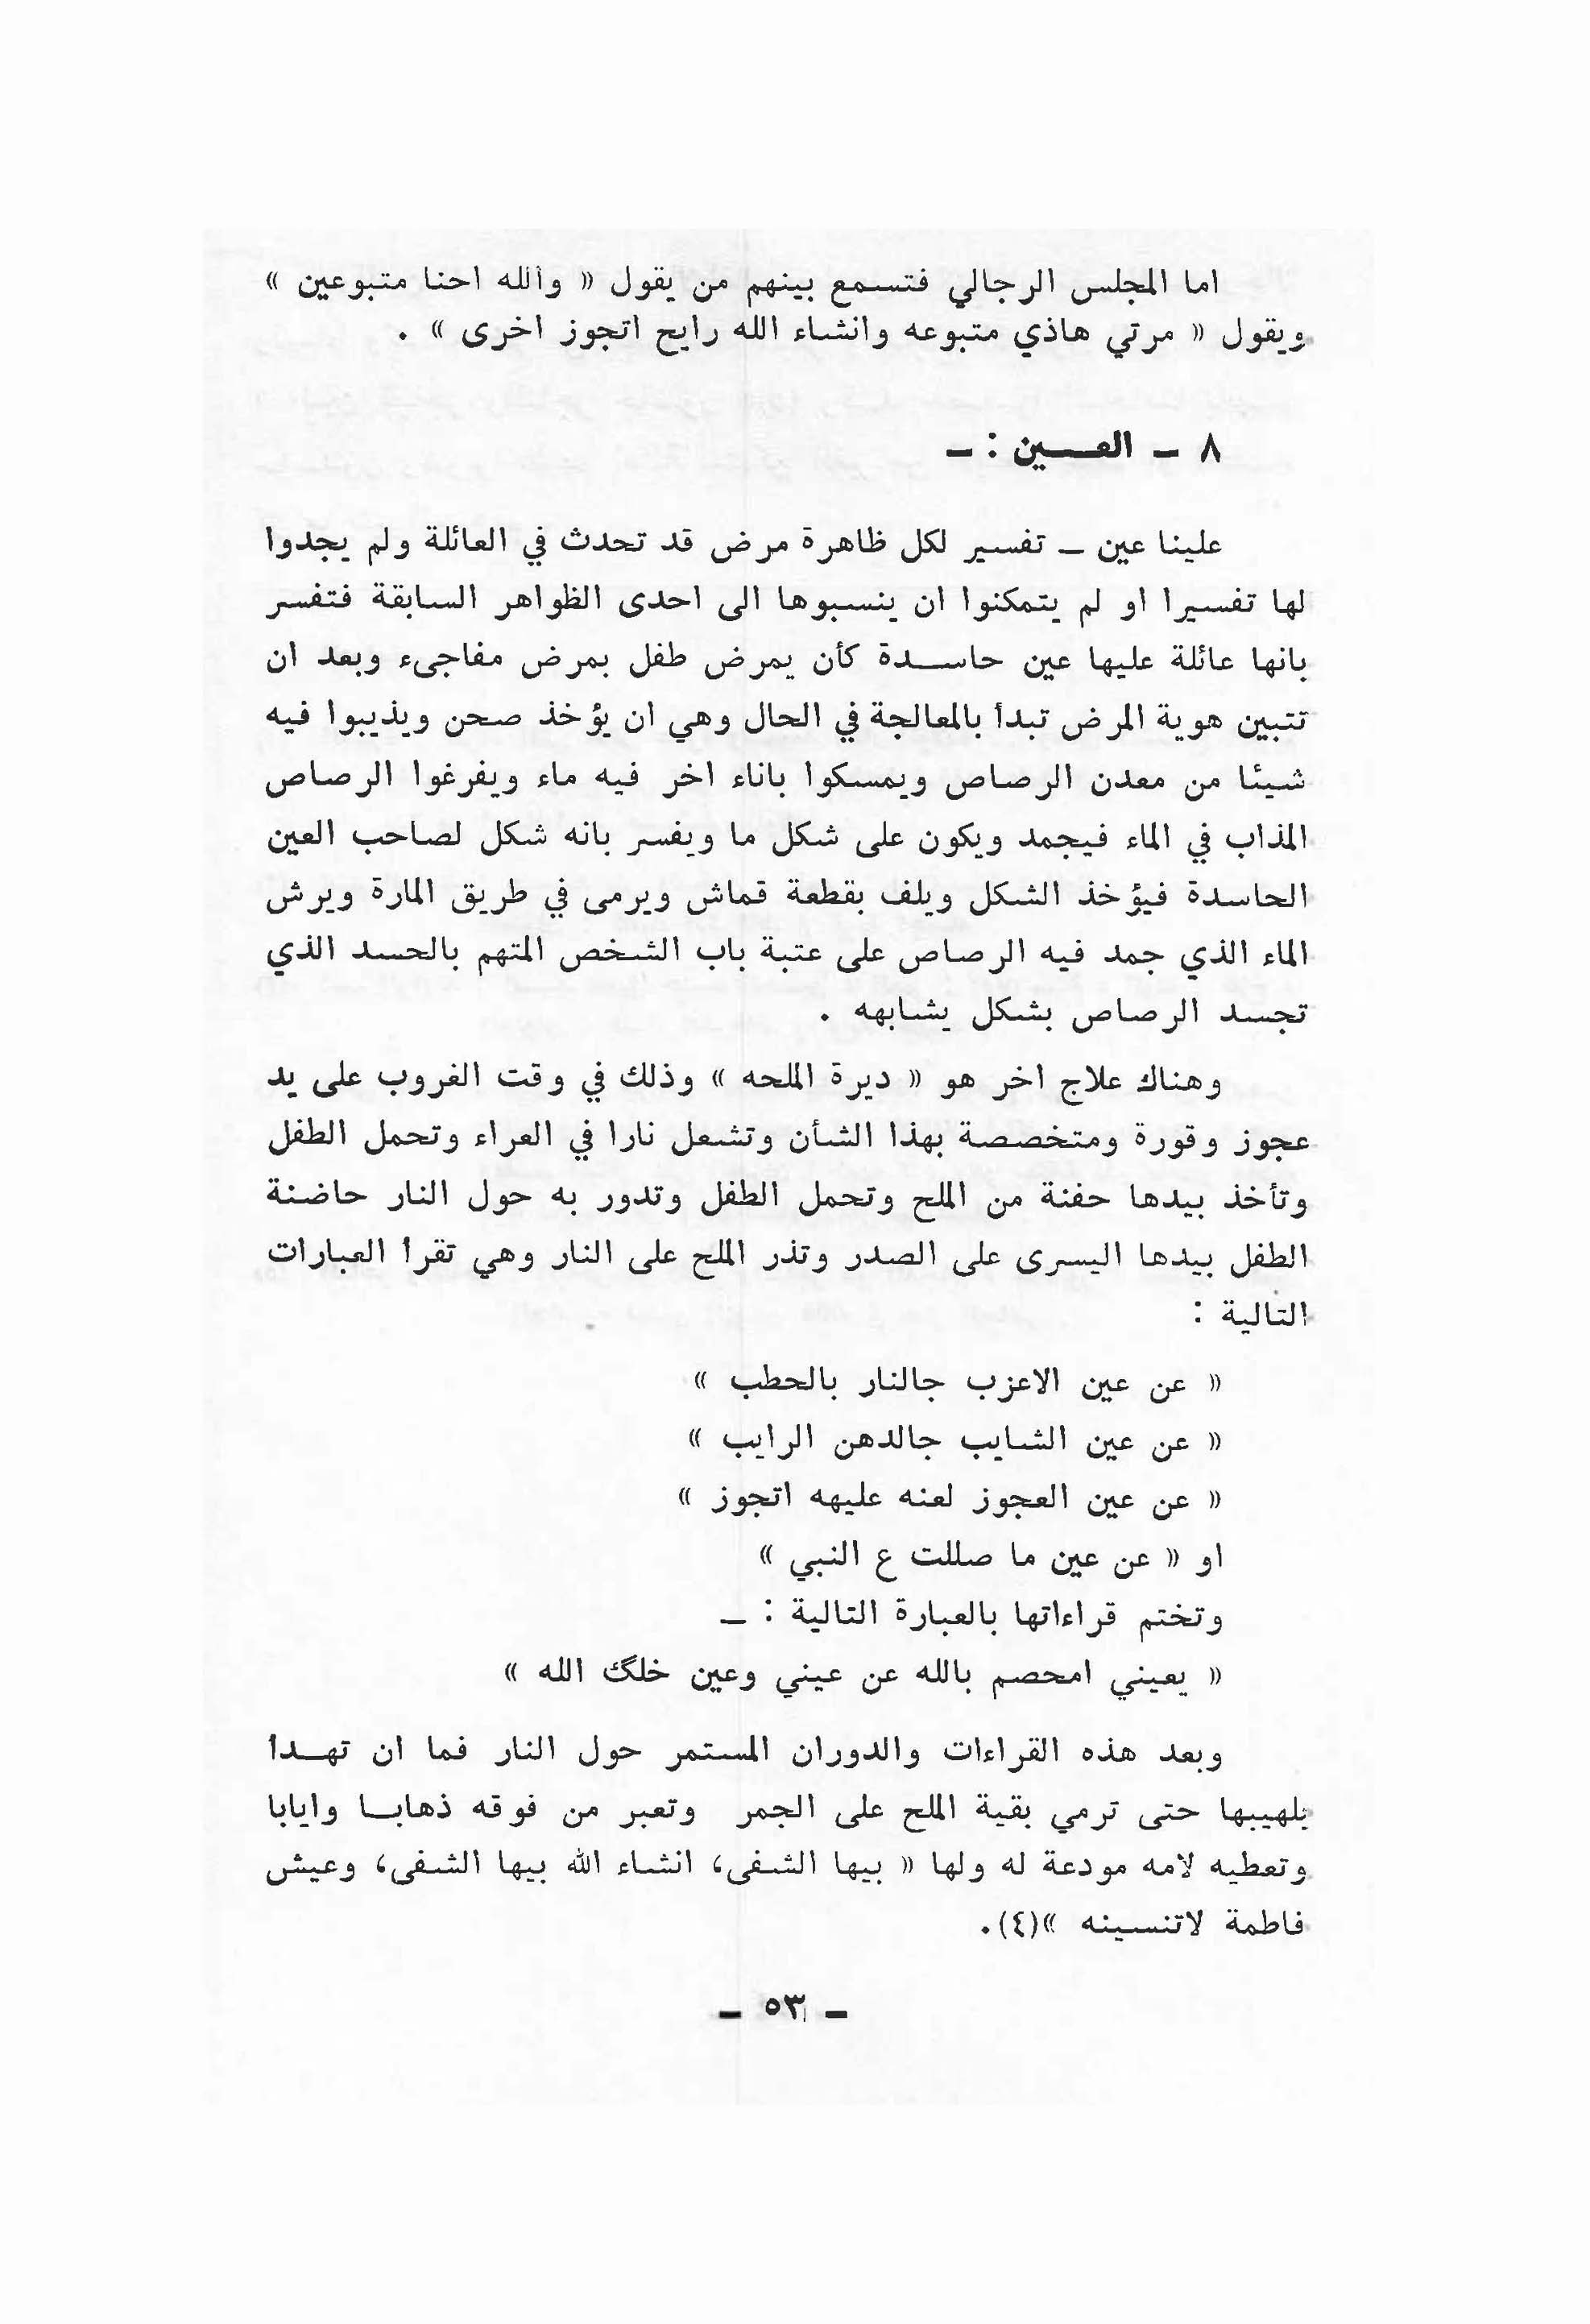 اما المجلس الرجالي فتسمع بينهم من يقول « والله احنا متبوعين »
ويقول « مرتي هاذي متبوعه وانشاء الله رايح اتجوز اخرى » .
٨ ــ العـــين : ــ
علينا عين ــ تفسير لكل ظاهرة مرض قد تحدث في العائلة ولم يجدوا
لها تفسيرا او لم يتمكنوا ان ينسبوها الى احدى الظواهر السابقة فتفسر
بانها عائلة عليها عين حاســدة كأن يمرض طفل بمرض مفاجىء وبعد ان
تتبين هوية المرض تبدأ بالمعالجة في الحال وهي ان يؤخذ صحن ويذيبوا فيه
شيئا من معدن الرصاص ويمسكوا باناء اخر فيه ماء ويفرغوا الرصاص
المذاب في الماء فيجمد ويكون على شكل ما ويفسر بانه شكل لصاحب العين
الحاسدة فيؤخذ الشكل ويلف بقطعة قماش ويرمى في طريق المارة ويرش
الماء الذي جمد فيه الرصاص على عتبة باب الشخص المتهم بالحسد الذي
تجسد الرصاص بشكل يشابهه .
وهناك علاج اخر هو « ديرة الملحه » وذلك في وقت الغروب على يد
عجوز وقورة ومتخصصة بهذا الشأن وتشعل نارا في العراء وتحمل الطفل
وتأخذ بيدها حفنة من الملح وتحمل الطفل وتدور به حول النار حاضنة
الطفل بيدها اليسرى على الصدر وتذر الملح على النار وهي تقرأ العبارات
التالية :
« عن عين الاعزب جالنار بالحطب »
« عن عين الشايب جالدهن الرايب »
« عن عين العجوز لعنه عليهه اتجوز »
او « عن عين ما صللت ع النبي »
وتختم قراءاتها بالعبارة التالية : ــ
« يعيني امحصم بالله عن عيني وعين خلگ الله »
وبعد هذه القراءات والدوران المستمر حول النار فما ان تهــدأ
بلهيبها حتى ترمي بقية الملح على الجمر وتعبر من فوقه ذهابــا وايابا
وتعطيه لامه مودعة له ولها « بيها الشفى، انشاء الله بيها الشفى، وعيش
فاطمة لاتنسينه »(٤).
ــ ٥٣ ــ